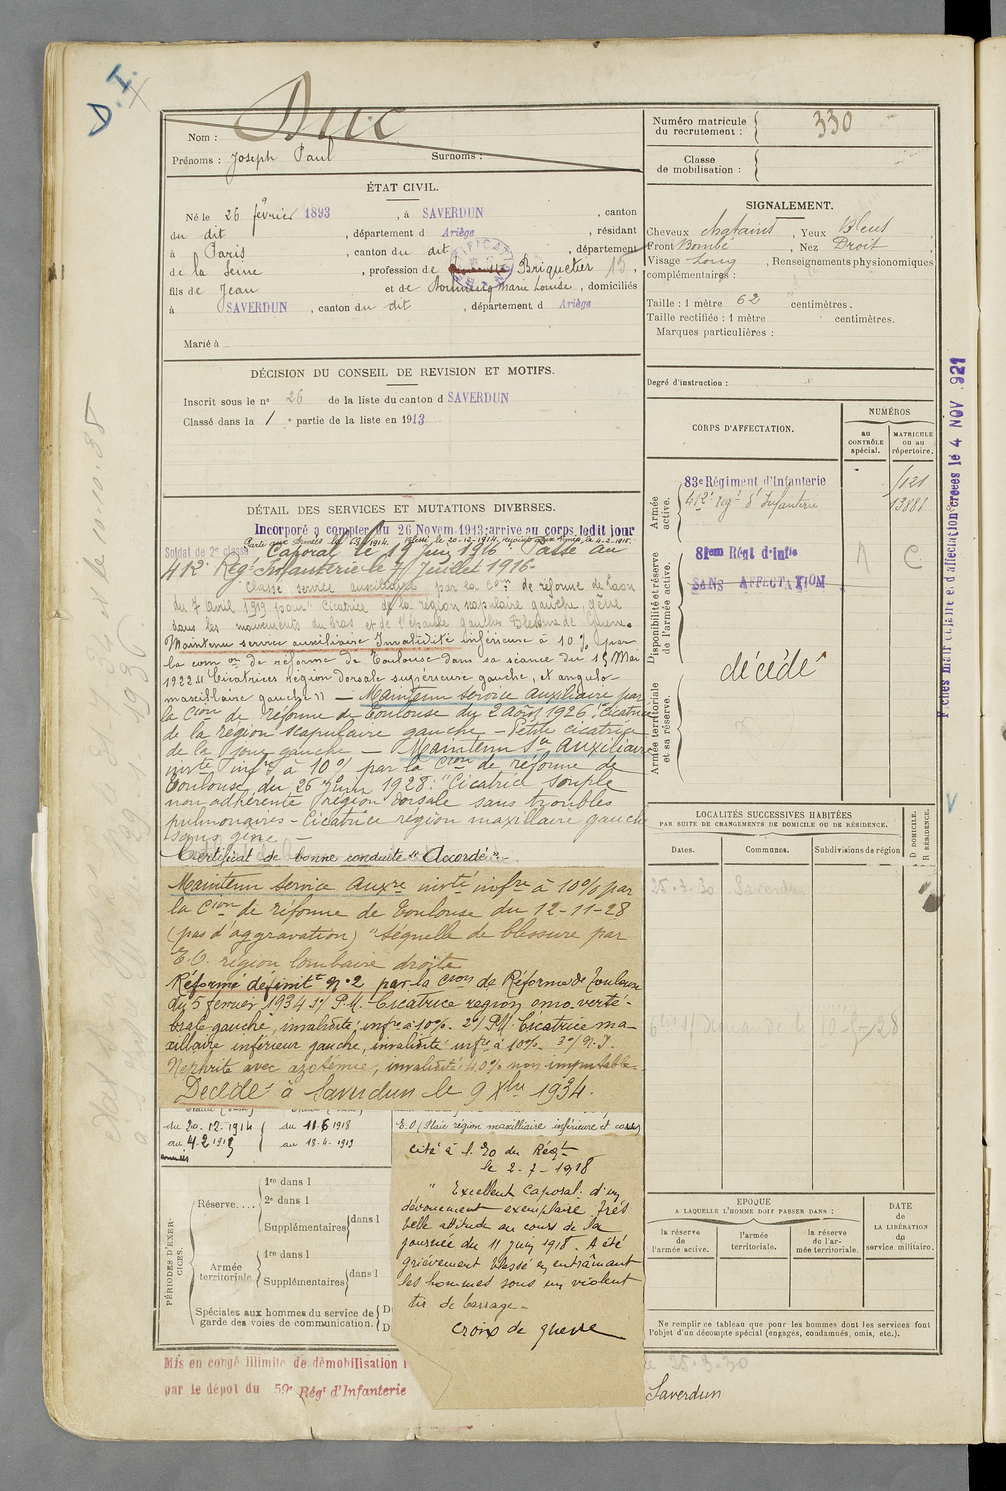 D.I.
Nom : Duc
Prénoms : Joseph Paul Surnoms :
Numéro matricule
du recrutement : 330
Classe
de mobilisation :
ÉTAT CIVIL.
Né le 26 février 1893, à SAVERDUN, canton
du dit, département d Ariège, résidant
à Paris, canton du dit, département
de la Seine, profession de Briquetier 15,
fils de Jean et de Marie Louise, domiciliés
à SAVERDUN, canton du dit, département d Ariège
Marié à
SIGNALEMENT.
Cheveux chatains, Yeux Bleus
Front Bombé, Nez Droit
Visage Long, Renseignements physionomiques
complémentaires :
Taille : 1 mètre 62 centimètres.
Taille rectifiée : 1 mètre centimètres.
Marques particulières :
Degré d'instruction :
DÉCISION DU CONSEIL DE REVISION ET MOTIFS.
Inscrit sous le n° 26 de la liste du canton d SAVERDUN
Classé dans la 1e partie de la liste en 1913
DÉTAIL DES SERVICES ET MUTATIONS DIVERSES.
Incorporé a compter du 26 Novem.1913; arrive au corps ledit jour
Soldat de 2e classe Caporal le 19 juin 1916 Passé au
412e Rég. Infanterie le 7 Juillet 1916.
Classé service auxiliaire par la Con de réforme de Laon
du 7 avril 1919 pour "cicatrice de la région scapulaire gauche, gêne
dans les mouvements du bras et de l'épaule gauches Blessure de Guerre.
Maintenu service auxiliaire Invalidité inférieure à 10% par
la com on de réforme de Toulouse dans sa séance du 15 Mai
1922 "Cicatrices région dorsale supérieure gauche, et angulo
maxillaire gauche" — Maintenu service auxiliaire par
la Cion de réforme de Toulouse du 2 août 1926 "Cicatrice
de la région scapulaire gauche — Petite cicatrice
de la joue gauche — Maintenu Sce Auxiliaire
invté infre à 10% par la Cion de réforme de
Toulouse du 26 Juin 1928. "Cicatrice souple
non adhérente région dorsale sans troubles
pulmonaires - Cicatrice région maxillaire gauche
sans gêne —
Certificat de bonne conduite "Accordé".
Maintenu Service Auxre invté infre à 10% par
la Cion de réforme de Toulouse du 12-11-28
(pas d'aggravation) "séquelle de blessure par
E.O. région lombaire droite
Réformé définit t n°2 par la Cion de Réforme de Toulouse
du 5 fevrier 1934 1°/ P.M. Cicatrice region omo verté-
brale gauche, invalidité infre à 10%. 2°/ P.M. Cicatrice ma-
xillaire inférieur gauche, invalidité infre à 10%. 3°/ N.I.
Nephrite avec azotémie, invalidité 40% non imputable.
Décédé à Saverdun le 9 Xbre 1934.
du 20.12.1914
au 4.2.1915
du 11.6.1918
au 18.4.1919
E.O (Plaie région maxilliaire inférieure et
cité à l. Eo du Régt
le 2-7-1918
"Excellent Caporal. d'un
dévouement exemplaire très
belle attitude au cours de la
journée du 11 juin 1918. A été
grièvement blessé en entraînant
les hommes sous un violent
tir de barrage-
Croix de guerre
PÉRIODES D'EXERCICES.
Réserve....
1re dans l
2e dans l
Supplémentaires dans l
Armée
territoriale
1re dans l
Supplémentaires dans l
Spéciales aux hommes du service de
garde des voies de communication.
D
D
Mis en congé illimité de démobilisation
par le dépot du 59e Régt d'Infanterie
CORPS D'AFFECTATION.
NUMÉROS
au
CONTRÔLE
spécial.
MATRICULE
OU AU
répertoire.
Armée
active.
83e Régiment d'Infanterie
412e Régt d'Infanterie
7121
13881
Disponibilité et réserve
de l'armée active.
81em Régt d'Infie A C
SANS AFFECTATION
décédé
Armée territoriale
et sa réserve.
LOCALITÉS SUCCESSIVES HABITÉES
PAR SUITE DE CHANGEMENTS DE DOMICILE OU DE RÉSIDENCE.
D DOMICILE.
R RÉSIDENCE.
Dates.
Communes.
Subdivisions de région
25.3.30 Saverdun
EPOQUE
A LAQUELLE L'HOMME DOIT PASSER DANS :
la réserve
de
l'armée active.
l'armée
territoriale.
la réserve
de l'ar-
mée territoriale.
DATE
de
LA LIBÉRATION
du
service militaire.
Ne remplir ce tableau que pour les hommes dont les services font
l'objet d'un décompte spécial (engagés, condamnés, omis, etc.).
25.3.30
Saverdun
4 NOV 1921